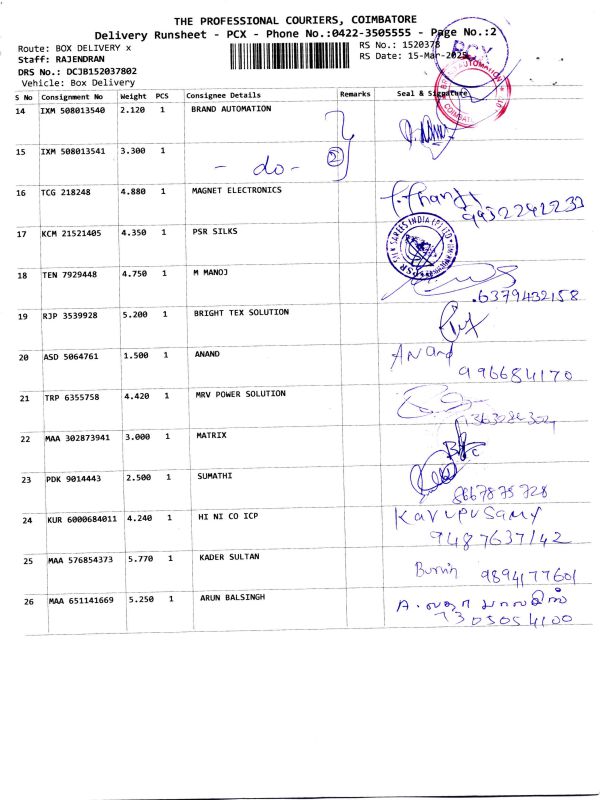 THE PROFESSIONAL COURIERS, COIMBATORE
Delivery Runsheet - PCX - Phone No.:0422-3505555 - Page No.:2
Route: BOX DELIVERY x
RS No.: 1520378
Staff: RAJENDRAN
RS Date: 15-Mar-2025
DRS No.: DCJB152037802
Vehicle: Box Delivery
PCX
S No Consignment No Weight PCS Consignee Details Remarks Seal & Signature
14 IXM 508013540 2.120 1 BRAND AUTOMATION
15 IXM 508013541 3.300 1
- do - 2
16 TCG 218248 4.880 1 MAGNET ELECTRONICS
9952242233
17 KCM 21521405 4.350 1 PSR SILKS
PSR SILK SAREES INDIA (P) LTD
18 TEN 7929448 4.750 1 M MANOJ
.6379432158
19 RJP 3539928 5.200 1 BRIGHT TEX SOLUTION
20 ASD 5064761 1.500 1 ANAND
Anand
996684170
21 TRP 6355758 4.420 1 MRV POWER SOLUTION
22 MAA 302873941 3.000 1 MATRIX
23 PDK 9014443 2.500 1 SUMATHI
8667875728
24 KUR 6000684011 4.240 1 HI NI CO ICP
Kavupusamy
9487637142
25 MAA 576854373 5.770 1 KADER SULTAN
9894177601
26 MAA 651141669 5.250 1 ARUN BALSINGH
7305054100